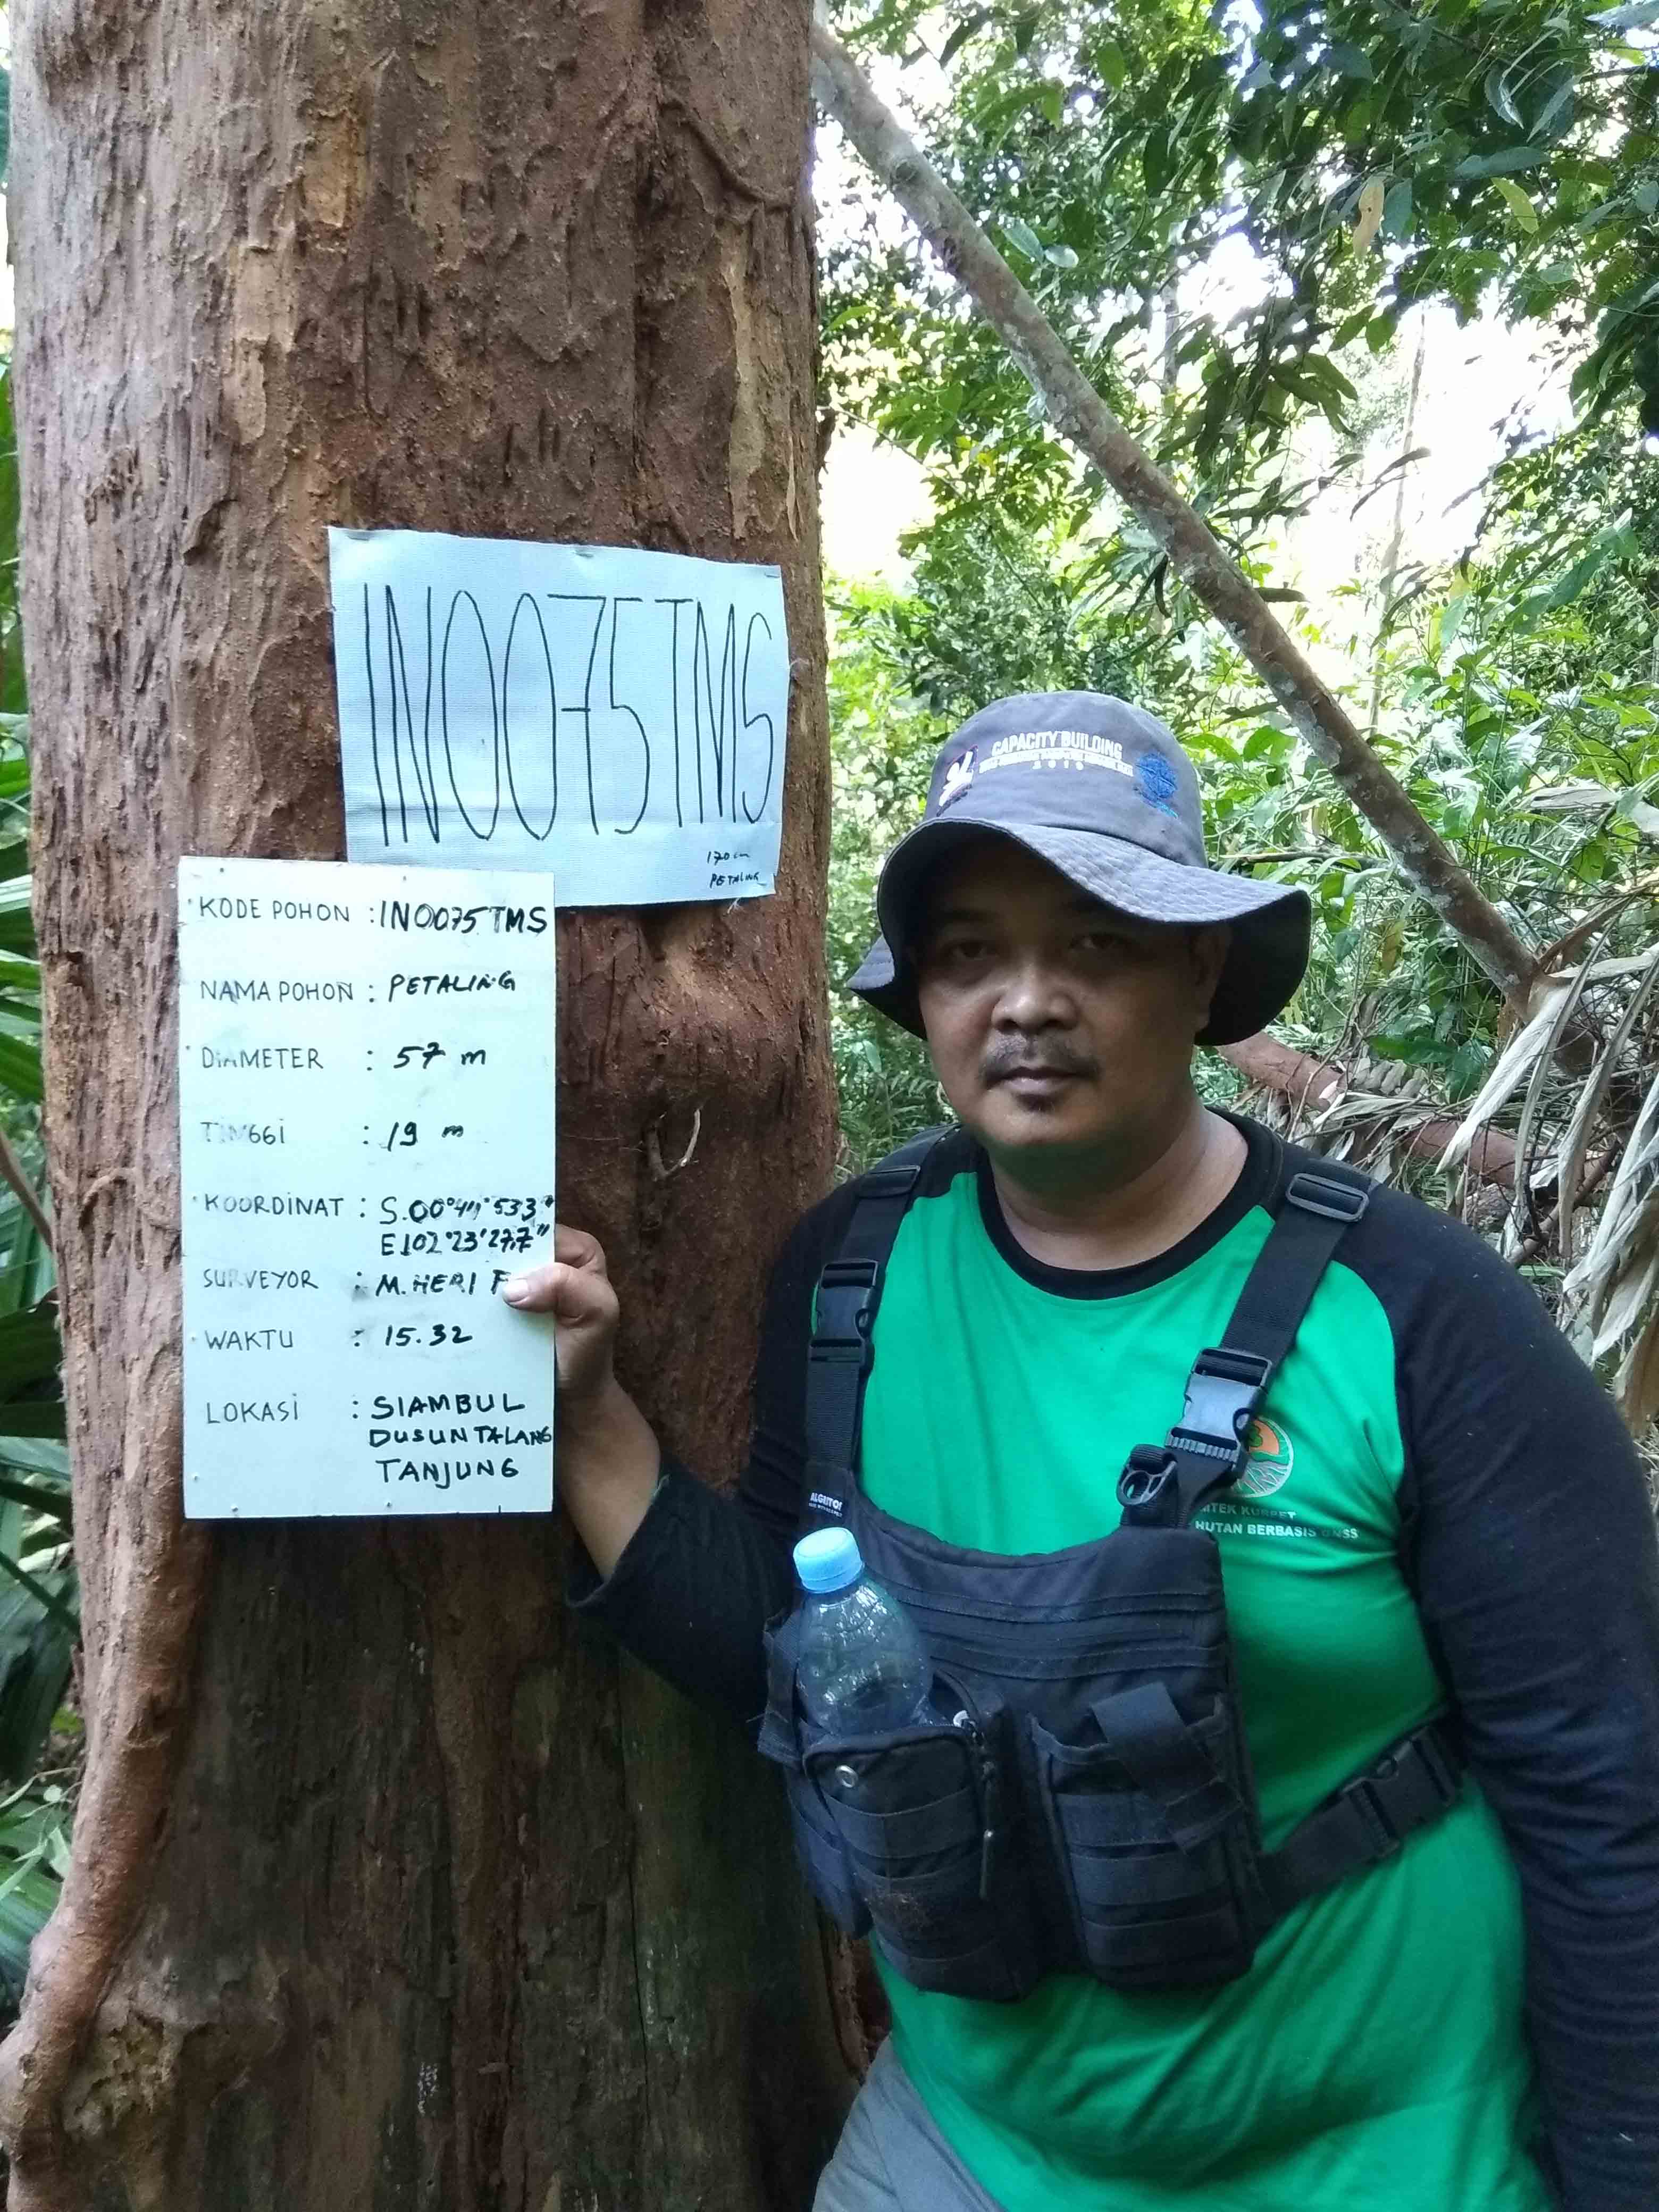 IN0075TMS
170 cm
PETALING
KODE POHON : IN0075 TMS
NAMA POHON : PETALING
DIAMETER : 57 m
TINGGI : 19 m
KOORDINAT : S.00°44'533"
E 102°23'27,7"
SURVEYOR : M. HERI
WAKTU : 15.32
LOKASI : SIAMBUL
DUSUN TALANG
TANJUNG
CAPACITY BUILDING
2019
HUTAN BERBASIS GNSS